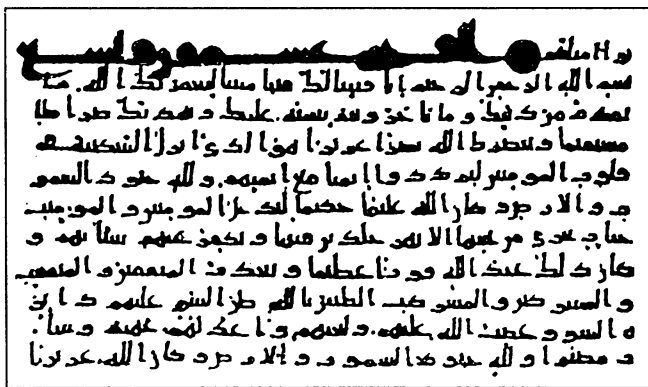 الفتح عشرون وتسع
بسم الله الرحمن الرحيم انا فتحنا لك فتحا مبينا ليغفر لك الله ما
تقدم من ذنبك وما تاخر ويتم نعمته عليك ويهديك صرطا
مستقيما وينصرك الله نصرا عزيزا هو الذي انزل السكينة في
قلوب المومنين ليزددوا ايمنا مع ايمنهم ولله جنود السمو
ت والارض وكان الله عليما حكيما ليدخل المومنين والمومنت
جنت تجري من تحتها الانهر خلدين فيها ويكفر عنهم سياتهم و
كان ذلك عند الله فوزا عظيما ويعذب المنفقين والمنفقت
والمشركين والمشركت الظنين بالله ظن السو عليهم داير
ة السو وغضب الله عليهم ولعنهم واعد لهم جهنم وسات
مصيرا ولله جنود السموت والارض وكان الله عزيزا